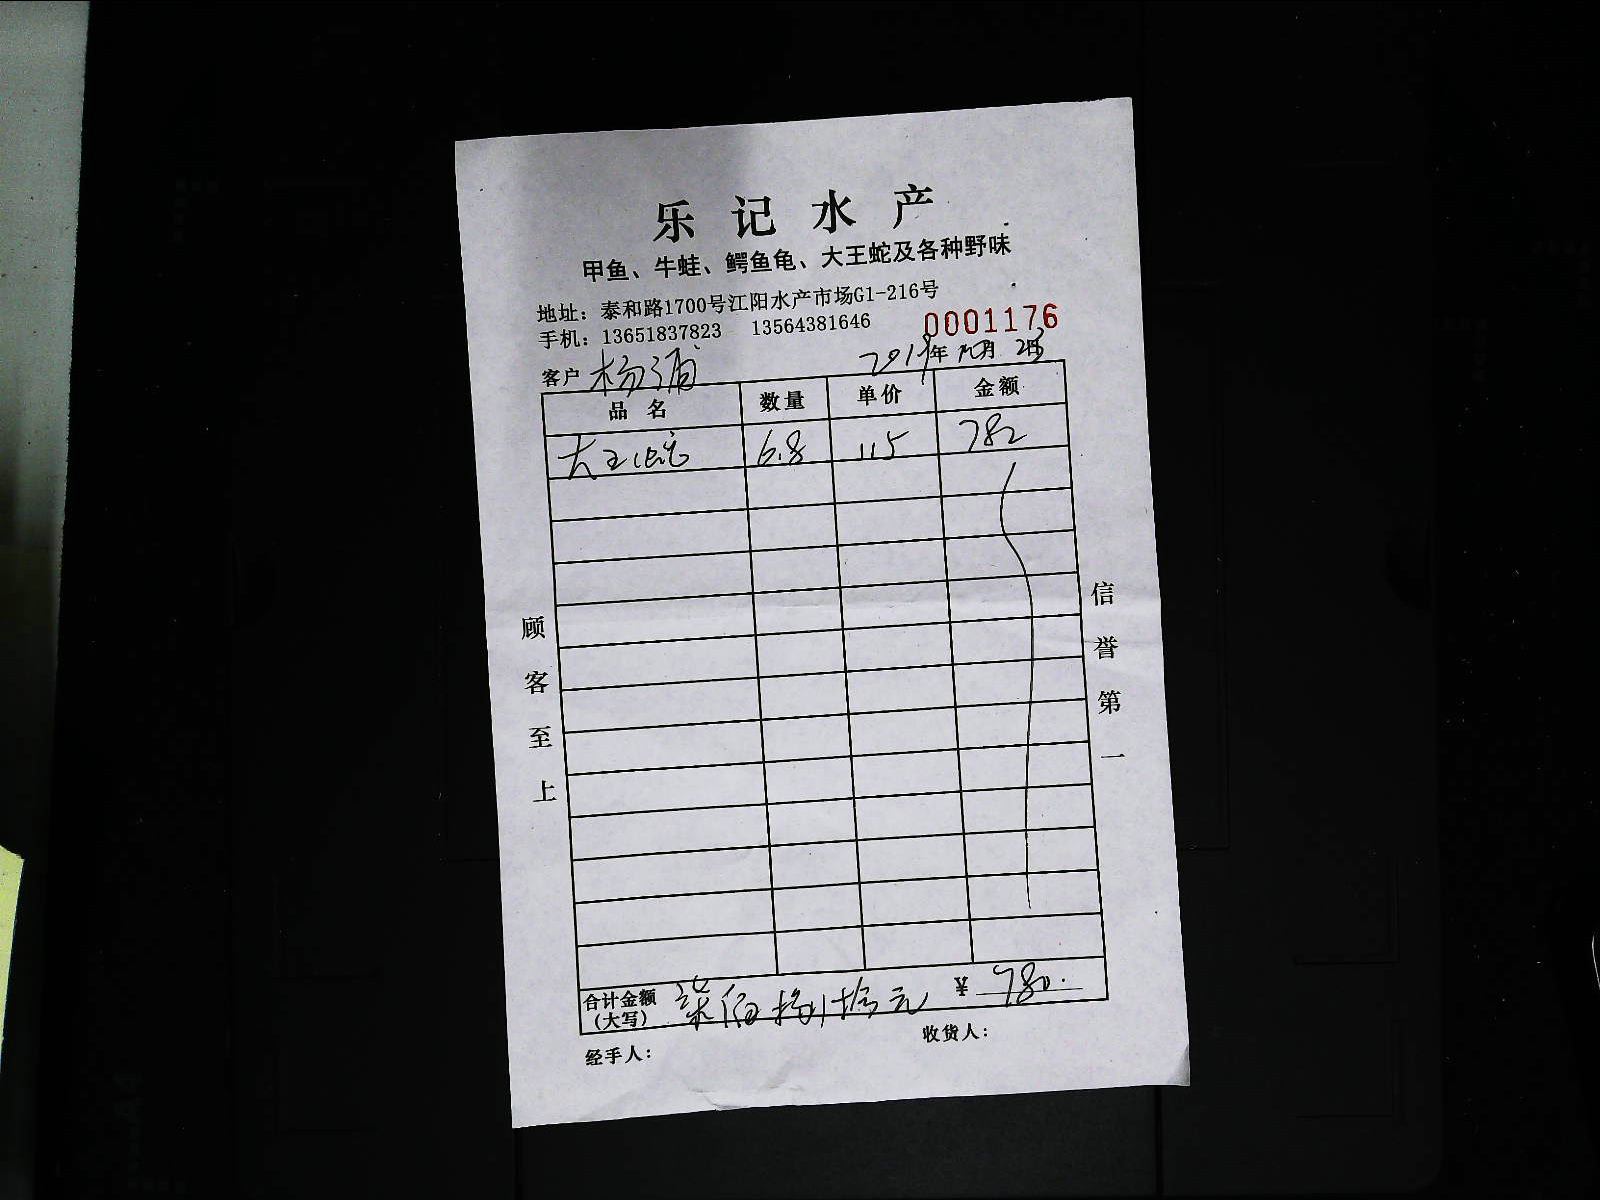 乐记水产
甲鱼、牛蛙、鳄鱼龟、大王蛇及各种野味
地址：泰和路1700号江阳水产市场G1-216号
手机：13651837823 13564381646 0001176
客户 杨浦 年 月 日
品名 数量 单价 金额
大王蛇 6.8 115 782
顾客至上
信誉第一
合计金额 柒佰捌拾元 ¥ 780.
（大写）
经手人： 收货人：